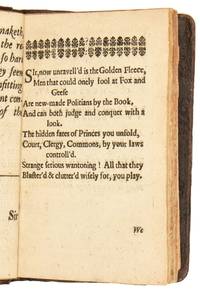 maketh
the re
so bar
ey seem
ofitting
nt con-
of the
Sir
SIr, now unravell'd is the Golden Fleece,
Men that could onely fool at Fox and
Geese
Are new-made Politians by the Book,
And can both judge and conquer with a
look.
The hidden fates of Princes you unfold,
Court, Clergy, Commons, by your laws
controll'd.
Strange serious wantoning! All that they
Bluster'd & clutter'd wisely for, you play.
We